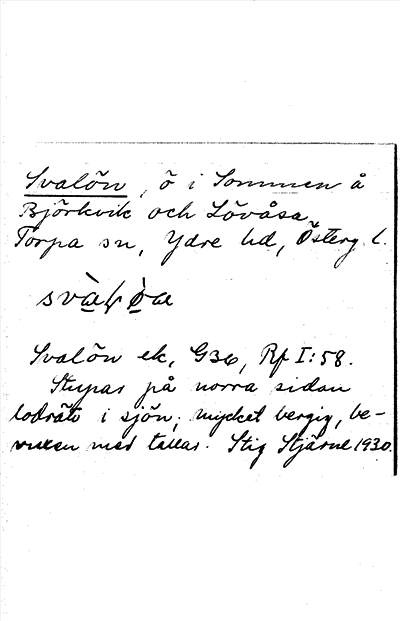 Svalön, ö i Sommen å
Björkvik och Lövåsa,
Torpa sn, Ydre hd, Österg. l.
Svalön ek. G36, Rf I:58.
Stupar på norra sidan
lodrätt i sjön; mycket bergig, be-
vuxen med tallar. Stig Stjärne 1930.